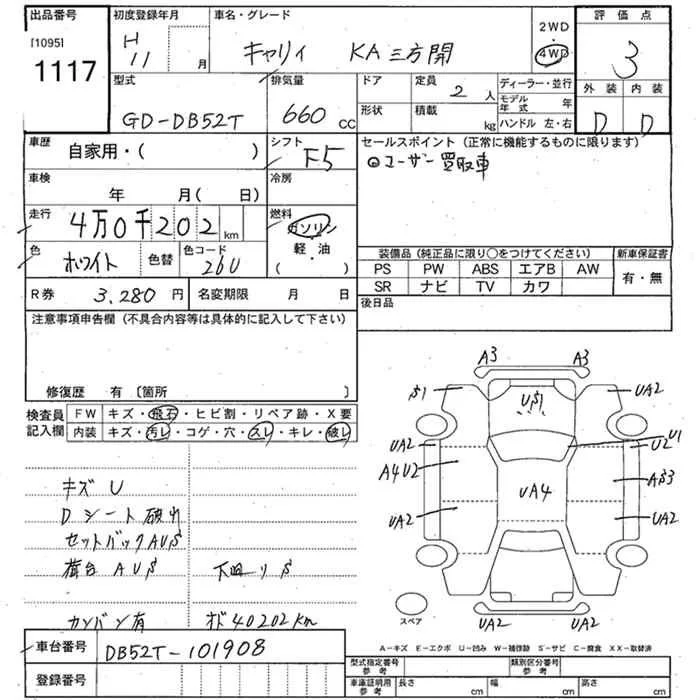 出品番号
[1095]
1117
初度登録年月
H
11
月
車名・グレード
キャリィ KA 三方開
2WD
4WD
評価点
3
外装 内装
D D
型式
GD-DB52T
排気量
660 cc
ドア
形状
定員 2 人
積載 kg
ディーラー・並行
モデル年式 年
ハンドル 左・右
車歴
自家用・( )
シフト
F5
セールスポイント (正常に機能するものに限ります)
◎ユーザー買取車
車検
年 月( 日)
冷房
走行
4万0千202km
燃料
ガソリン
軽・油
( ・ )
色
ホワイト
色替
色コード
26U
装備品 (純正品に限り○をつけてください)
新車保証書
PS PW ABS エアB AW
有・無
SR ナビ TV カワ
R券 3,280円
名変期限 月 日
後日品
注意事項申告欄 (不具合内容等は具体的に記入して下さい)
修復歴 有 〔箇所 〕
検査員
記入欄
FW キズ・飛石・ヒビ割・リペア跡・X要
内装 キズ・汚レ・コゲ・穴・スレ・キレ・破レ
キズ U
Dシート破れ
セットバックAUS
荷台 AUS 下廻りS
カンバン有 オド40202km
車台番号
DB52T-101908
登録番号
A3 A3
S1
US1
UA2
UA2
U1
U2
A4U2
UA4
AS3
UA2
UA2
スペア
UA2 UA2
A-キズ E-エクボ U-凹み W-補修跡 S-サビ C-腐食 XX-取替済
型式指定番号
参考
類別区分番号
参考
車庫証明用
参考
長さ cm
幅 cm
高さ cm